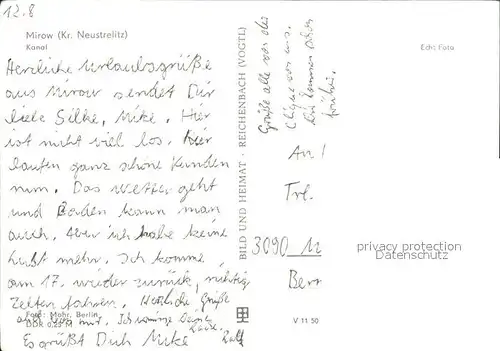 12.8
Mirow (Kr. Neustrelitz)
Kanal
Herzliche Urlaubsgrüße
aus Mirow sendet Dir
liebe Silke, Mike. Hier
ist nicht viel los. Hier
laufen ganz schöne Kunden
rum. Das Wetter geht
und Baden kann man
auch. Aber ich habe keine
Lust mehr. Ich komme
am 17. wieder zurück, richtig
Zelten fahren. Herzliche Grüße
auch von mir. Ich
Es grüßt Dich Mike Ralf
Foto: Mohr, Berlin
DDR 0,25 M
BILD UND HEIMAT · REICHENBACH (VOGTL)
Grüße alle von der
Clique von uns.
Wir kommen schon
Echt Foto
An!
Trl.
3090 11
Berr
privacy protection
V 11 50